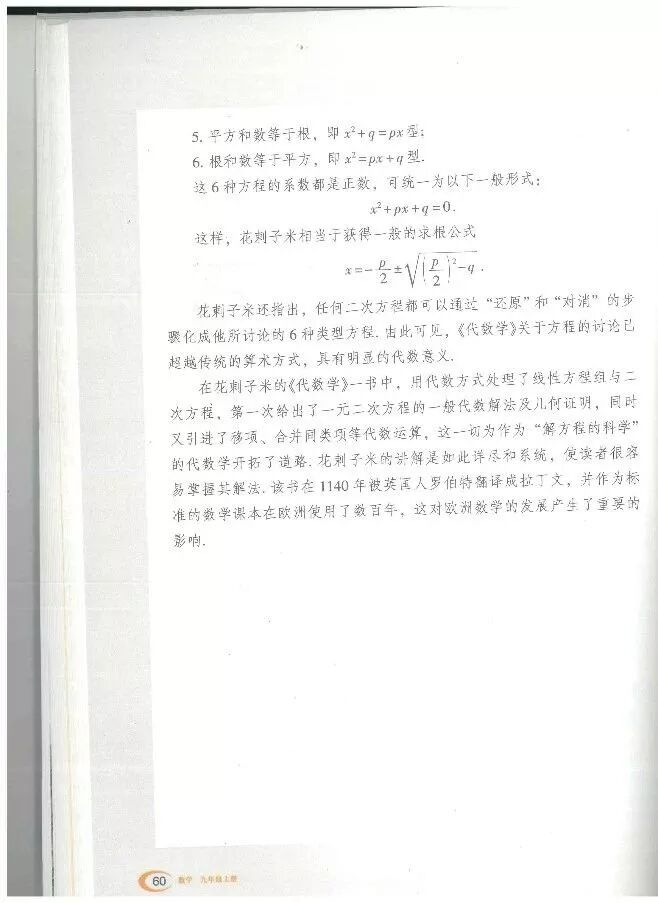 5. 平方和数等于根，即 x²+q=px型；
6. 根和数等于平方，即 x²=px+q 型.
这 6 种方程的系数都是正数，可统一为以下一般形式：
x²+px+q=0.
这样，花剌子米相当于获得一般的求根公式
x=-p/2±√((p/2)²-q).
花剌子米还指出，任何二次方程都可以通过“还原”和“对消”的步
骤化成他所讨论的 6 种类型方程. 由此可见，《代数学》关于方程的讨论已
超越传统的算术方式，具有明显的代数意义.
在花剌子米的《代数学》一书中，用代数方式处理了线性方程组与二
次方程，第一次给出了一元二次方程的一般代数解法及几何证明，同时
又引进了移项、合并同类项等代数运算，这一切为作为“解方程的科学”
的代数学开拓了道路. 花剌子米的讲解是如此详尽和系统，使读者很容
易掌握其解法. 该书在 1140 年被英国人罗伯特翻译成拉丁文，并作为标
准的数学课本在欧洲使用了数百年，这对欧洲数学的发展产生了重要的
影响.
60 数学 九年级上册